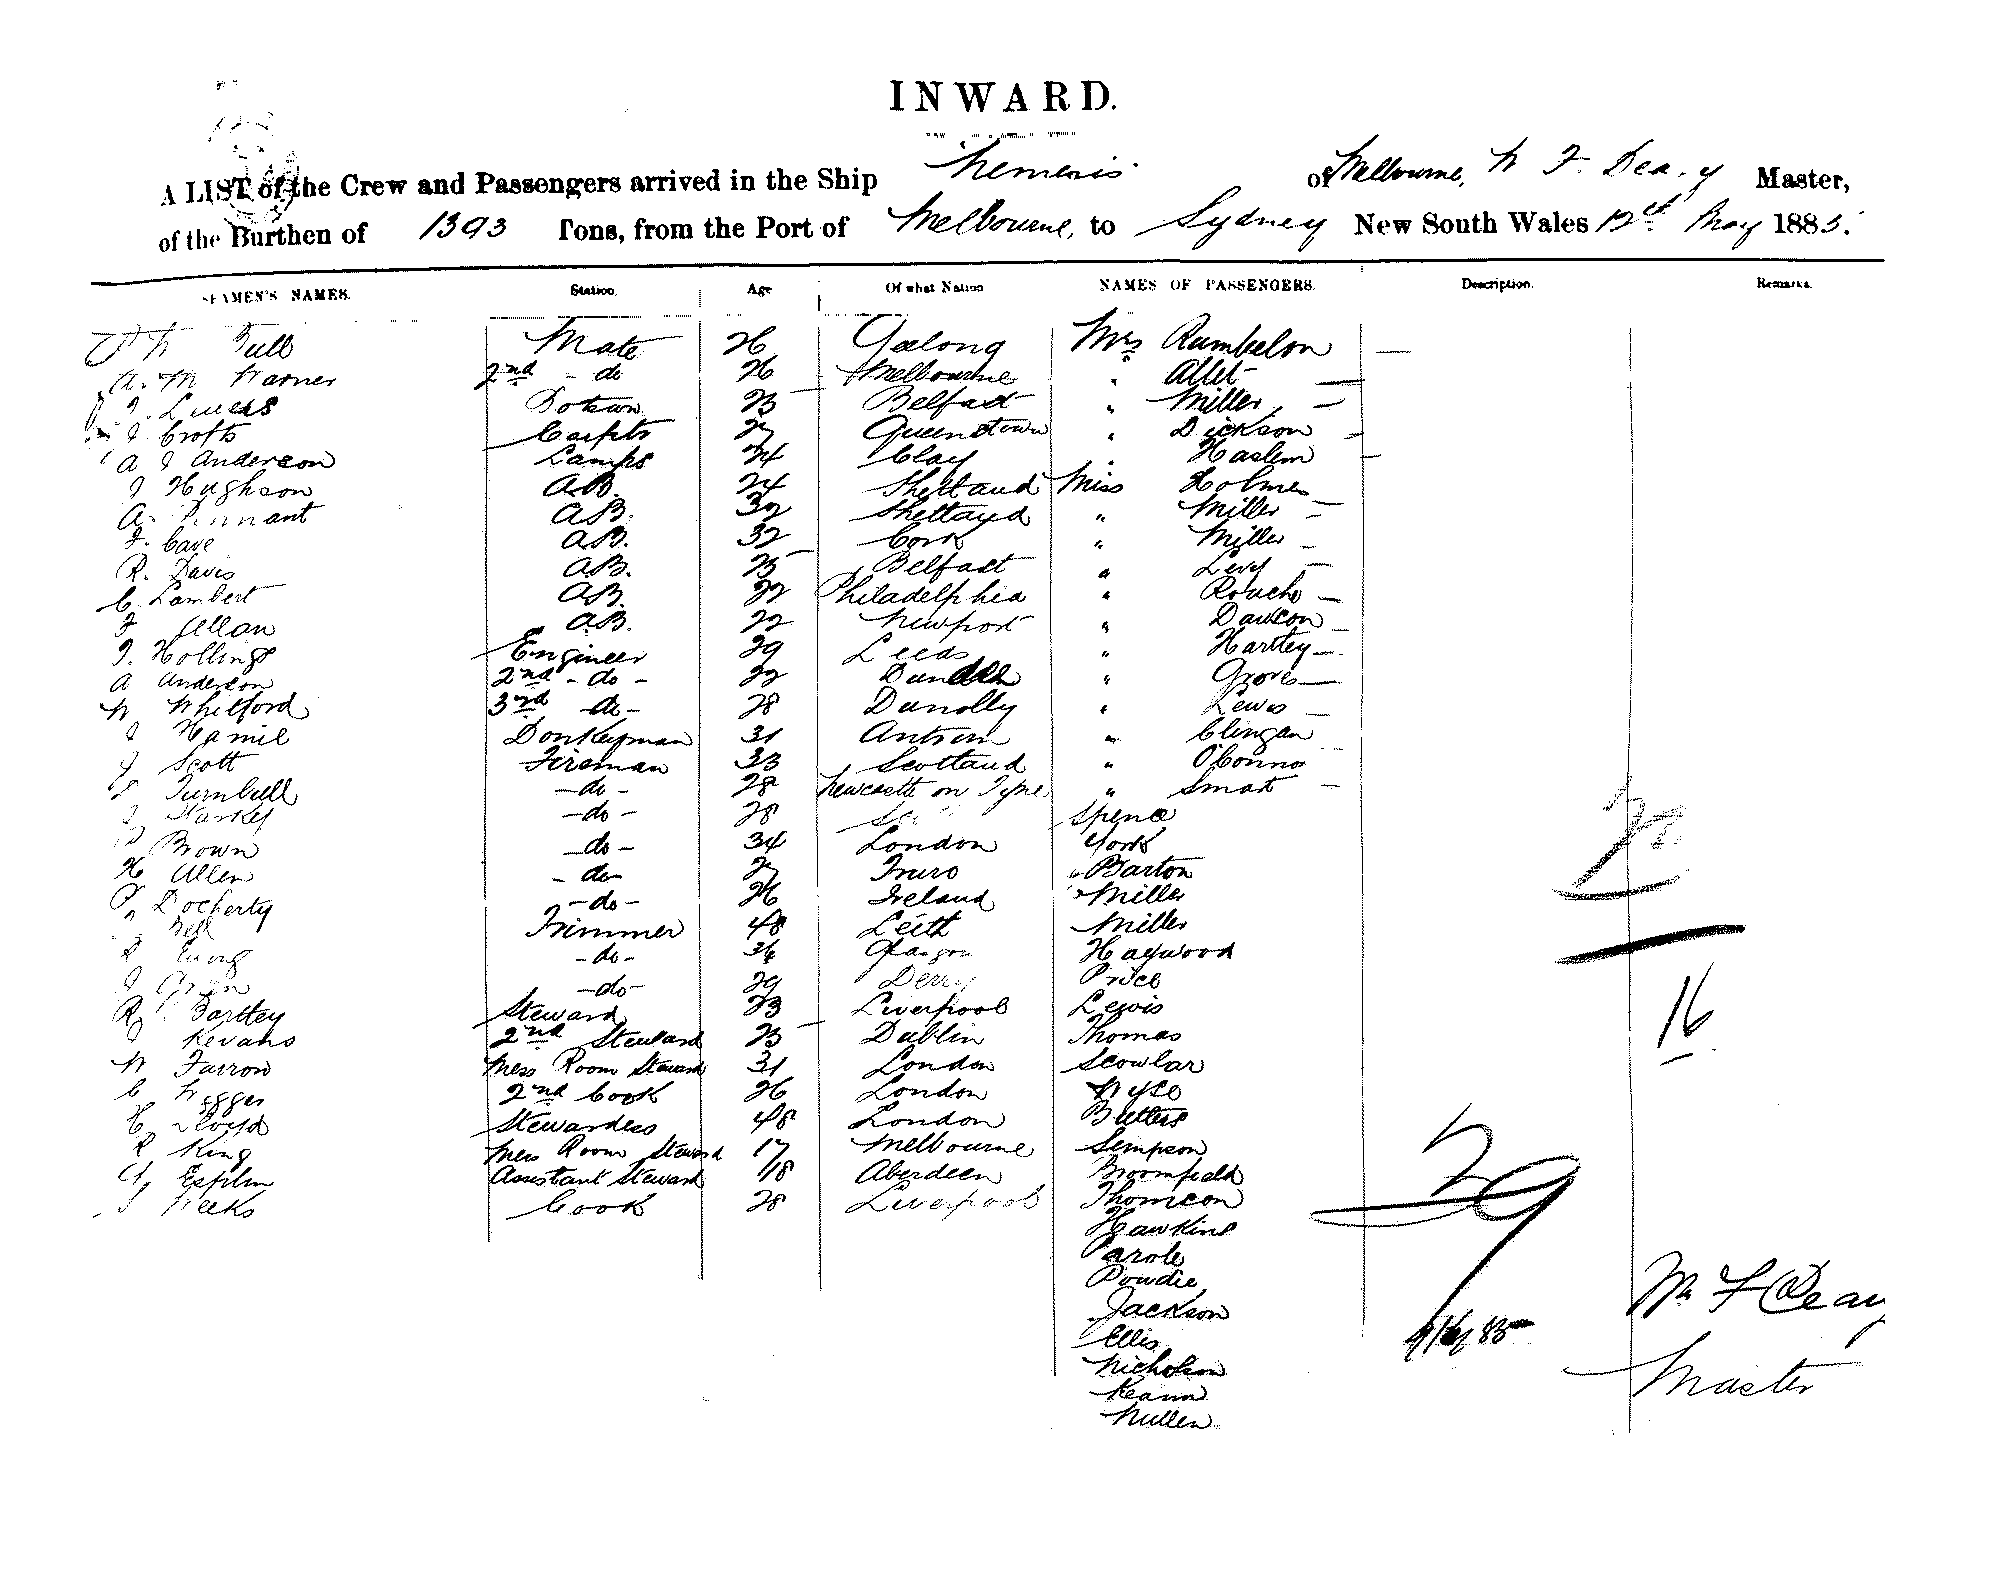 INWARD.
A LIST of the Crew and Passengers arrived in the Ship Nemesis of Melbourne, W F Deary Master,
of the Burthen of 1393 Tons, from the Port of Melbourne, to Sydney New South Wales 12th May 1885.
SEAMEN'S NAMES. Station. Age Of what Nation NAMES OF PASSENGERS. Description. Remarks.
Mate 26 Geelong Mrs Rumbelow —
A. M Warner 2nd - do 26 Melbourne " Allet —
Botswn 25 Belfast " Miller, —
J. Crofts Carptr Queenstown " Dickson —
A J Anderson Lamps 24 Clay " Haslem —
J Hughson A.B. 24 Shetland Miss Holmes —
A. Tennant A.B. 32 Shettand " Miller —
F. Cave A.B. 32 Cork " Miller —
R. Davis A.B. 25 Belfast " Levy —
C. Lambert A.B. 22 Philadelphia " —
J Allan A.B. 22 Newport " Dawson —
J. Hollings Engineer 29 Leeds " Hartley —
A Anderson 2nd - do - 22 Dundee " Groves —
W Whitford 3rd do - 28 Dunolly " Lewis —
J Hamil Donkeyman 31 Antrim " Clingan
J Scott Fireman 33 Scotland " O'Conno
Turnbull - do - 28 Newcastle on Tyne " Smart —
- do - 28 Spence
Brown - do - 34 London York
H Allen - do - Truro Barton
P. Docherty - do - 26 Ireland Miller
Bell Trimmer 48 Leith Miller
- do - 36 Glasgow Haywood
- do - 29 Derry Price
R Barttey Steward 23 Liverpool Lewis
J Kevans 2nd Steward 25 Dublin Thomas
W Farrow Mess Room Steward 31 London Scowlar
C 2nd Cook 26 London
H. Lloyd Stewardess 48 London Butters
R King Mess Room Steward 17 Melbourne Sempson
Esplin Assistant Steward 18 Aberdeen Broomfield
J Weeks Cook 28 Liverpool Thomson
Hawkins
Parole
Powdie
Jackson
Ellis
Nicholson
Keann
Mullen
16
29
Wm F Deary
Master